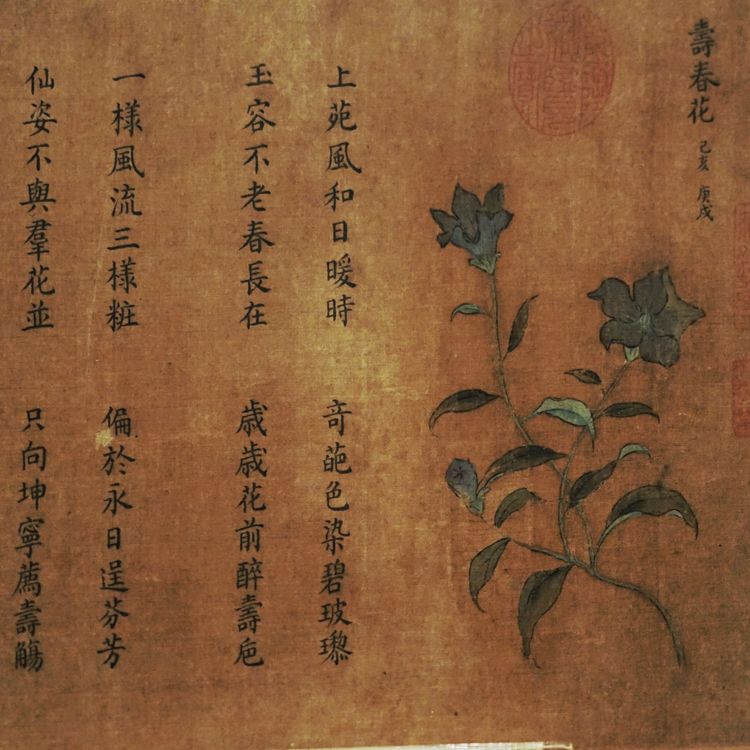 壽春花 己亥 庚戌
上苑風和日暖時 竒葩色染碧玻瓈
玉容不老春長在 歳歳花前醉壽巵
一様風流三様粧 偏於永日逞芬芳
仙姿不與羣花並 只向坤寧薦壽觴